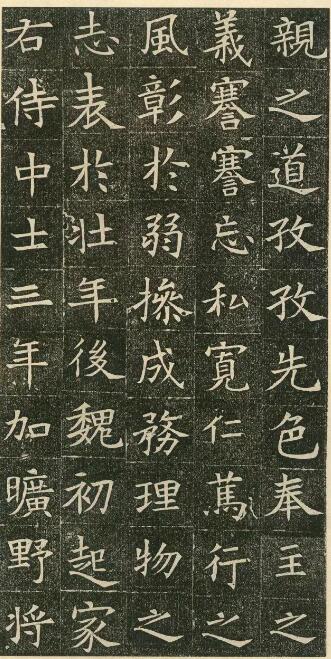 親之道孜孜先色奉王之
義謇謇忘私寬仁篤行之
風彰於弱操成務理物之
志表於壯年後魏初起家
右侍中士三年加曠野將